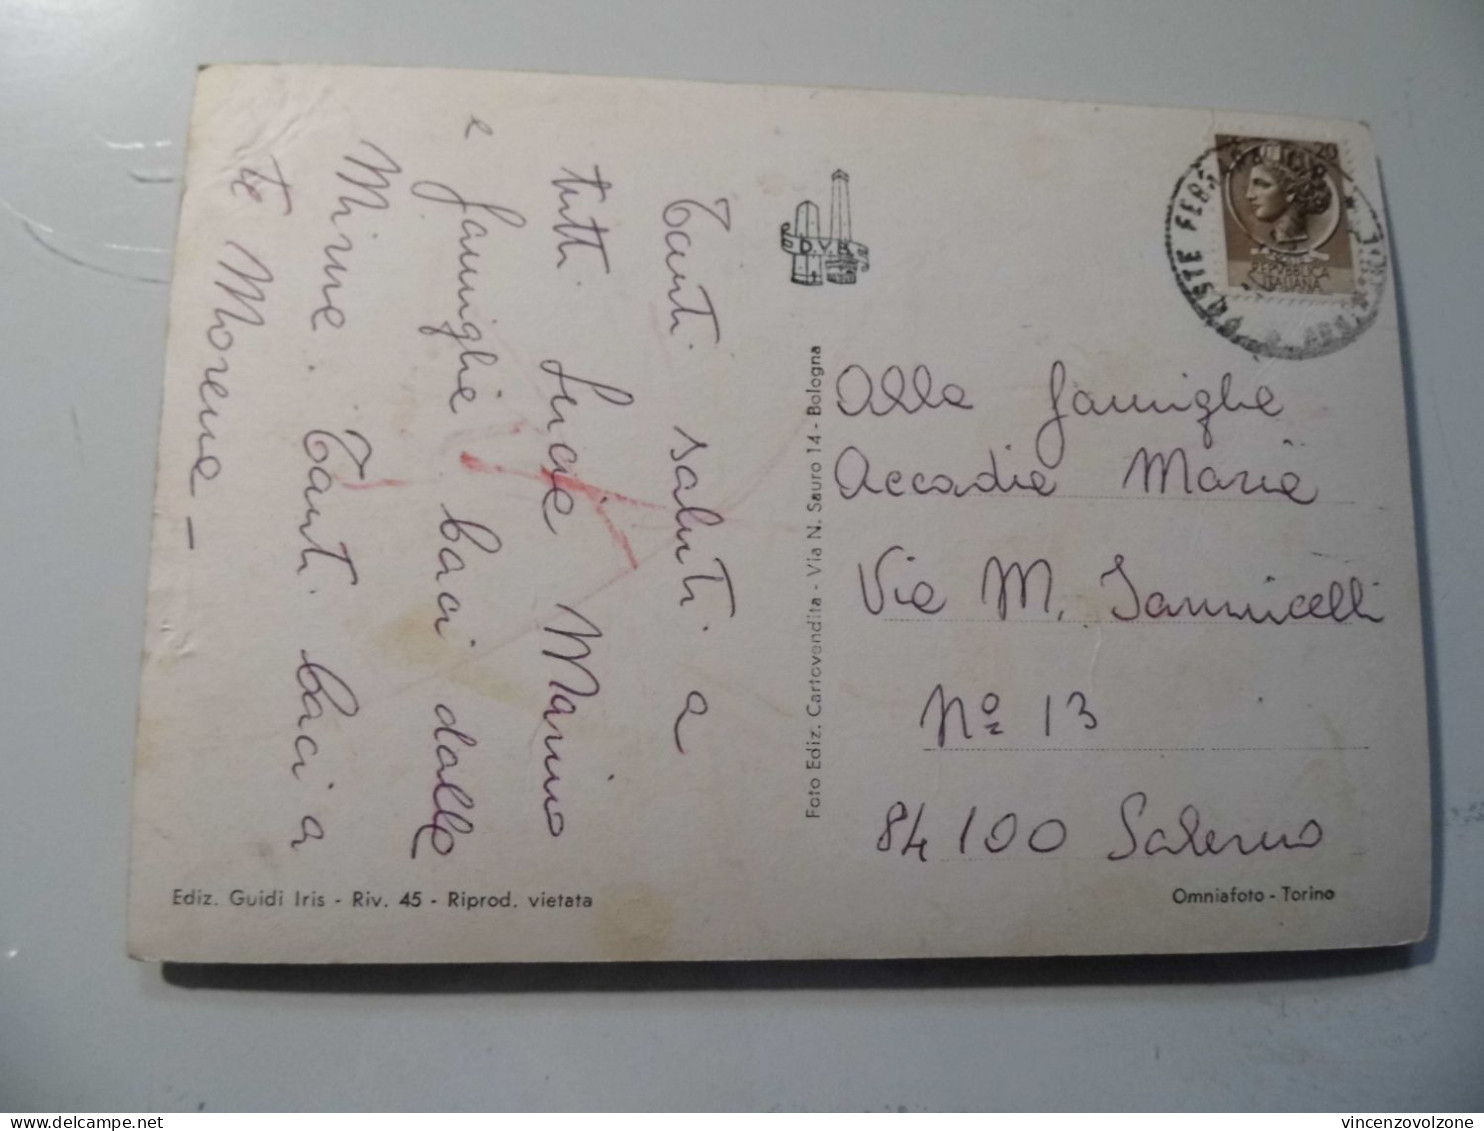 Tanti saluti a
tutti Lucie Marino
e famiglie baci dalle
Mirne. Tanti baci a
te Morena -
D.V.B.
Foto Ediz. Cartovendita - Via N. Sauro 14 - Bologna
20
REPVBBLICA
ITALIANA
Alla famiglie
Accadie Marie
Via M. Iannicelli
Nº 13
84100 Salerno
Ediz. Guidi Iris - Riv. 45 - Riprod. vietata
Omniafoto - Torino
vincenzovolzone